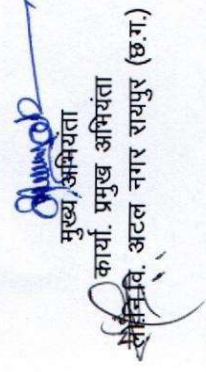 मुख्य अभियंता
कार्या. प्रमुख अभियंता
लो.नि.वि. अटल नगर रायपुर (छ.ग.)